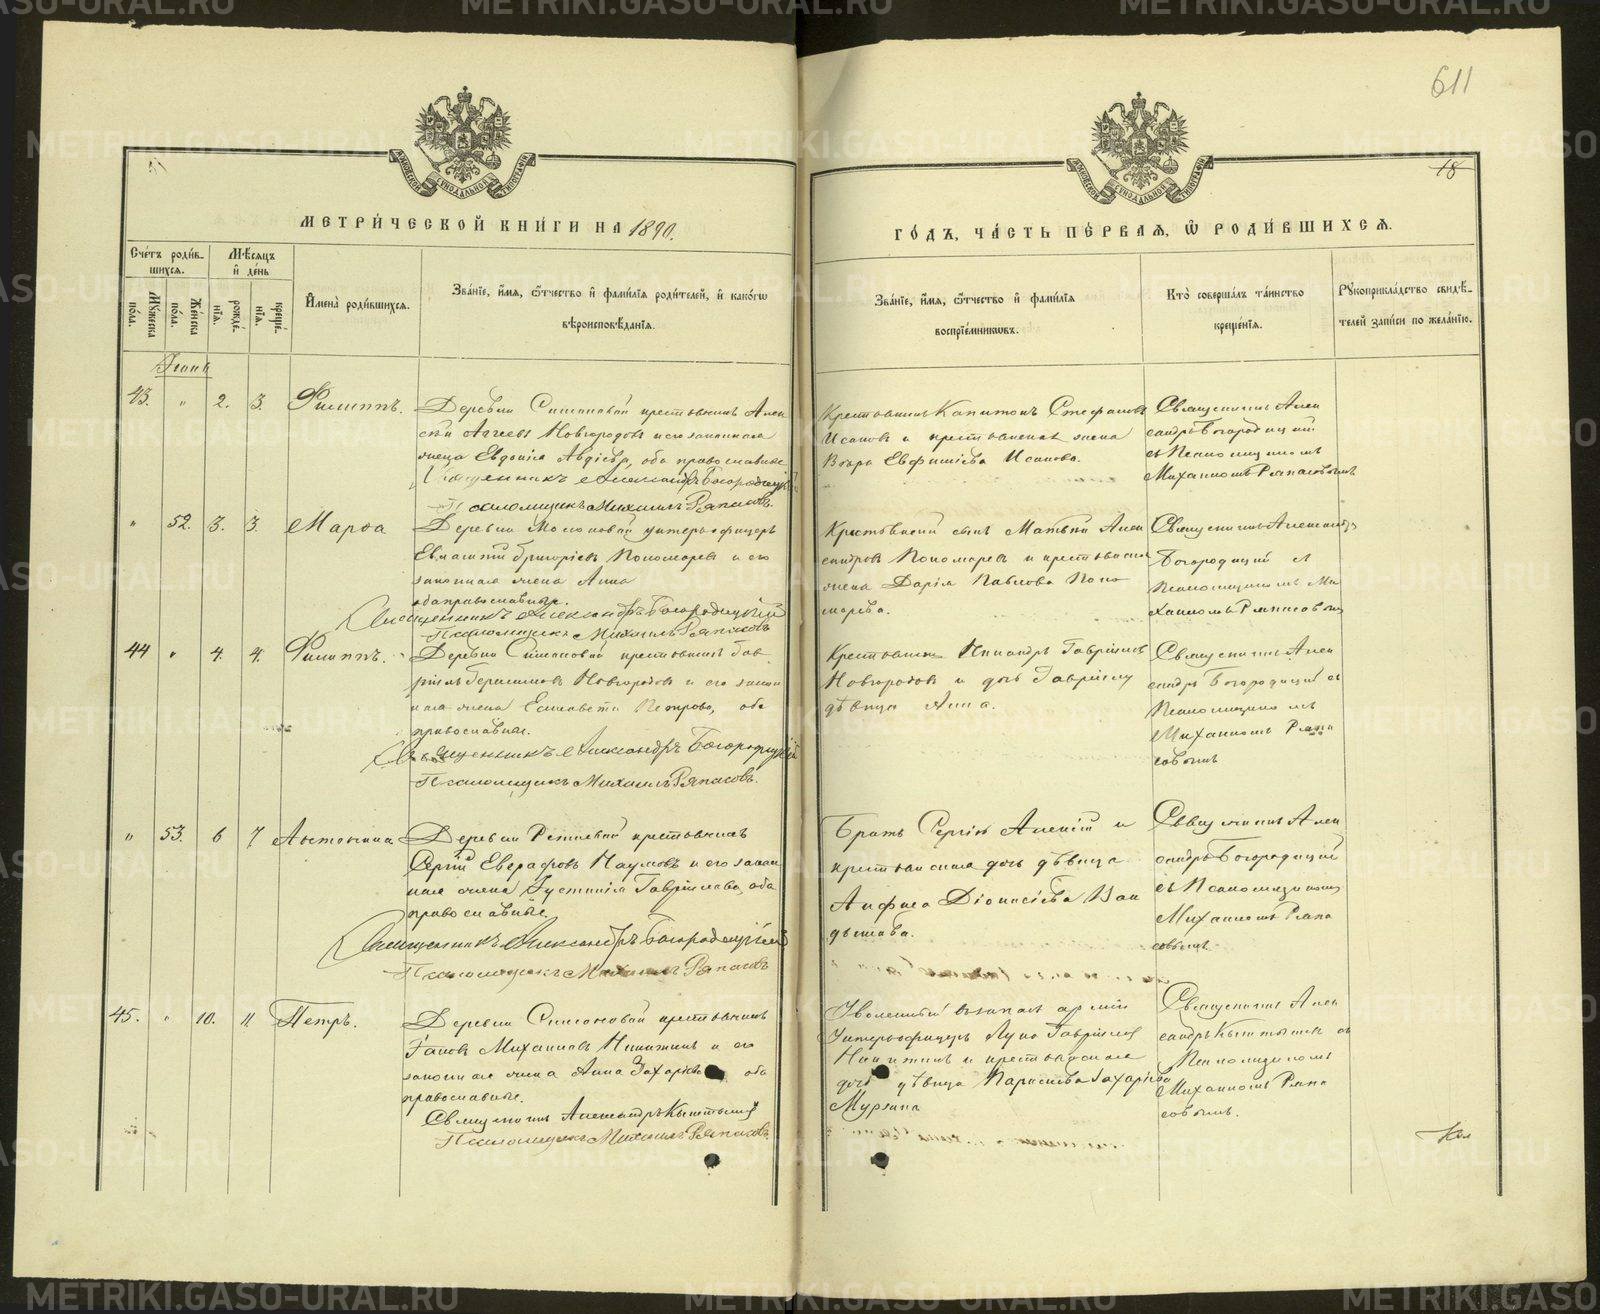 611
18
МЕТРИ́ЧЕСКОЙ КНИ́ГИ НА 1890.
ГО́ДЪ, ЧА́СТЬ ПЕ́РВАЯ, Ѿ РОДИ́ВШИХСЯ.
Сче́тъ роди́вшихся.
Мѣ́сяцъ и҆ де́нь
Му́жеска по́ла.
Же́нска по́ла.
рожде́нїя.
креще́нїя.
И҆мена̀ роди́вшихся.
Зва́нїе, и҆́мя, ѻ҆́тчество и҆ фами́лїя роди́телей, и҆ како́гѡ
вѣроисповѣ́данїя.
Зва́нїе, и҆́мя, ѻ҆́тчество и҆ фами́лїя
воспрїе́мникѡвъ.
Кто̀ соверша́лъ та́инство
креще́нїя.
Рꙋкоприкла́дство свидѣ́-
телей за́писи по жела́нїю.
43. " 2. 3. Филиппъ.
Деревни Симановой крестьянинъ Алек
сѣй Агѣевъ Новгородовъ и его законная
жена Евдокія Авдіева, оба православные
Священникъ Александръ Богородицкій
Псаломщикъ Михаилъ Ряпасовъ.
Крестьянинъ Капитонъ Стефановъ
Исаковъ и крестьянская жена
Ефиміева Исакова.
Священникъ Алек
сандръ Богородицкій
съ Псаломщикомъ
Михаиломъ Ряпасовымъ
" 52. 3. 3. Марѳа
Деревни унтеръ-офицеръ
Евлампій Григорьевъ Пономаревъ и его
законная жена Анна
оба православные.
Священникъ Александръ Богородицкій
Псаломщикъ Михаилъ Ряпасовъ
Крестьянскій сынъ Матвѣй Алек
сандровъ Пономаревъ и крестьянская
жена Дарія Павлова Поно
марева.
Священникъ Александръ
Богородицкій съ
Псаломщикомъ Ми
хаиломъ Ряпасовымъ
44 " 4. 4. Филиппъ.
Деревни Симановой крестьянинъ Гав
ріилъ Герасимовъ Новгородовъ и его закон
ная жена Елисавета Петрова, оба
православные.
Священникъ Александръ Богородицкій
Псаломщикъ Михаилъ Ряпасовъ.
Крестьянинъ Никандръ Гавріиловъ
Новгородовъ и дочь Гавріила
дѣвица Анна.
Священникъ Алек
сандръ Богородицкій съ
Псаломщикомъ
Михаиломъ Ряпа
совымъ
" 53. 6 7 Антонина
Деревни крестьянинъ
Сергій Евграфовъ Наумовъ и его закон
ная жена Іустинія Гавріилова, оба
православные.
Священникъ Александръ Богородицкій
Псаломщикъ Михаилъ Ряпасовъ
Братъ Сергія Алексій и
крестьянская дочь дѣвица
Анфиса Діонисіева
Священникъ Алек
сандръ Богородицкій
съ Псаломщикомъ
Михаиломъ Ряпа
совымъ.
45. " 10. 11 Петръ.
Деревни Симановой крестьянинъ
Іаковъ Михаиловъ Никитинъ и его
законная жена Анна Захаріева оба
православные.
Священникъ Александръ Кыштымовъ
Псаломщикъ Михаилъ Ряпасовъ.
Уволенный въ запасъ арміи
Унтеръ-офицеръ Лука Гавріиловъ
Никитинъ и крестьянская
дочь дѣвица Параскева Захаріева
Мурзина
Священникъ Алек
сандръ Кыштымовъ съ
Псаломщикомъ
Михаиломъ Ряпа
совымъ.